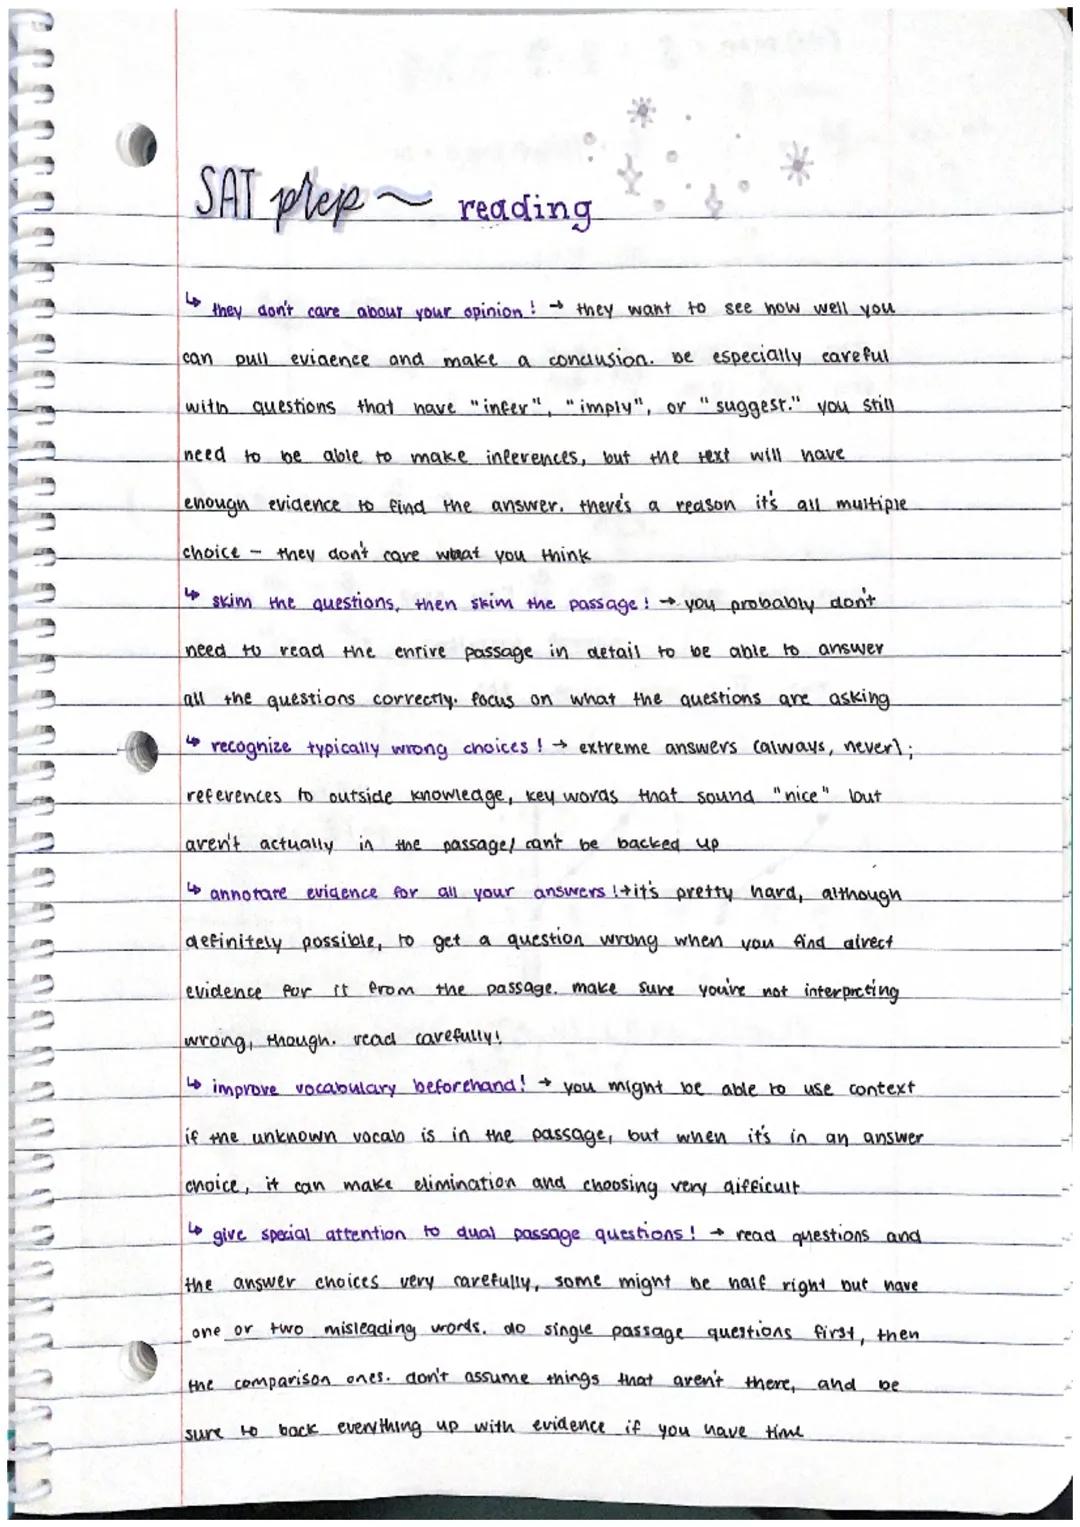 SAT prep ~ reading
↳ they don't care about your opinion! → they want to see how well you
can pull evidence and make a conclusion. be especially careful
with questions that have "infer", "imply", or "suggest." you still
need to be able to make inferences, but the text will have
enough evidence to find the answer. there's a reason it's all multiple
choice - they don't care what you think
↳ skim the questions, then skim the passage! → you probably don't
need to read the entire passage in detail to be able to answer
all the questions correctly. focus on what the questions are asking
↳ recognize typically wrong choices! → extreme answers (always, never);
references to outside knowledge, key words that sound "nice" but
aren't actually in the passage/can't be backed up
↳ annotate evidence for all your answers! → it's pretty hard, although
definitely possible, to get a question wrong when you find direct
evidence for it from the passage. make sure you're not interpreting
wrong, though. read carefully!
↳ improve vocabulary beforehand! → you might be able to use context
if the unknown vocab is in the passage, but when it's in an answer
choice, it can make elimination and choosing very difficult
↳ give special attention to dual passage questions! → read questions and
the answer choices very carefully, some might be half right but have
one or two misleading words. do single passage questions first, then
the comparison ones. don't assume things that aren't there, and be
sure to back everything up with evidence if you have time